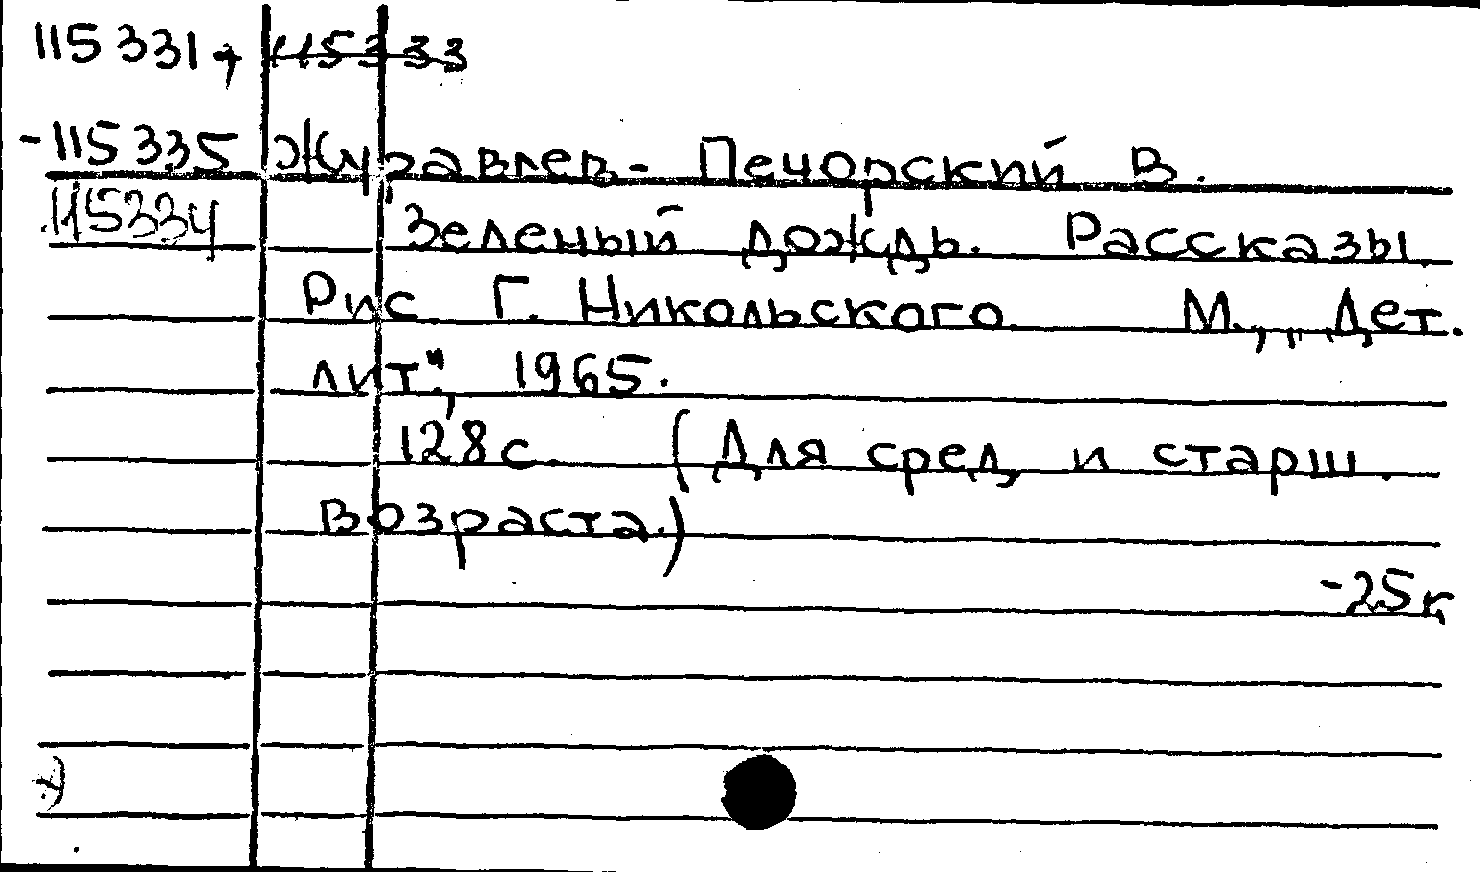 115331, 115333
-115335 Журавлев-Печорский В.
115334 Зеленый дождь. Рассказы.
Рис. Г. Никольского. М., „Дет.
лит.", 1965.
128 с. (Для сред. и старш.
возраста.)
-25к